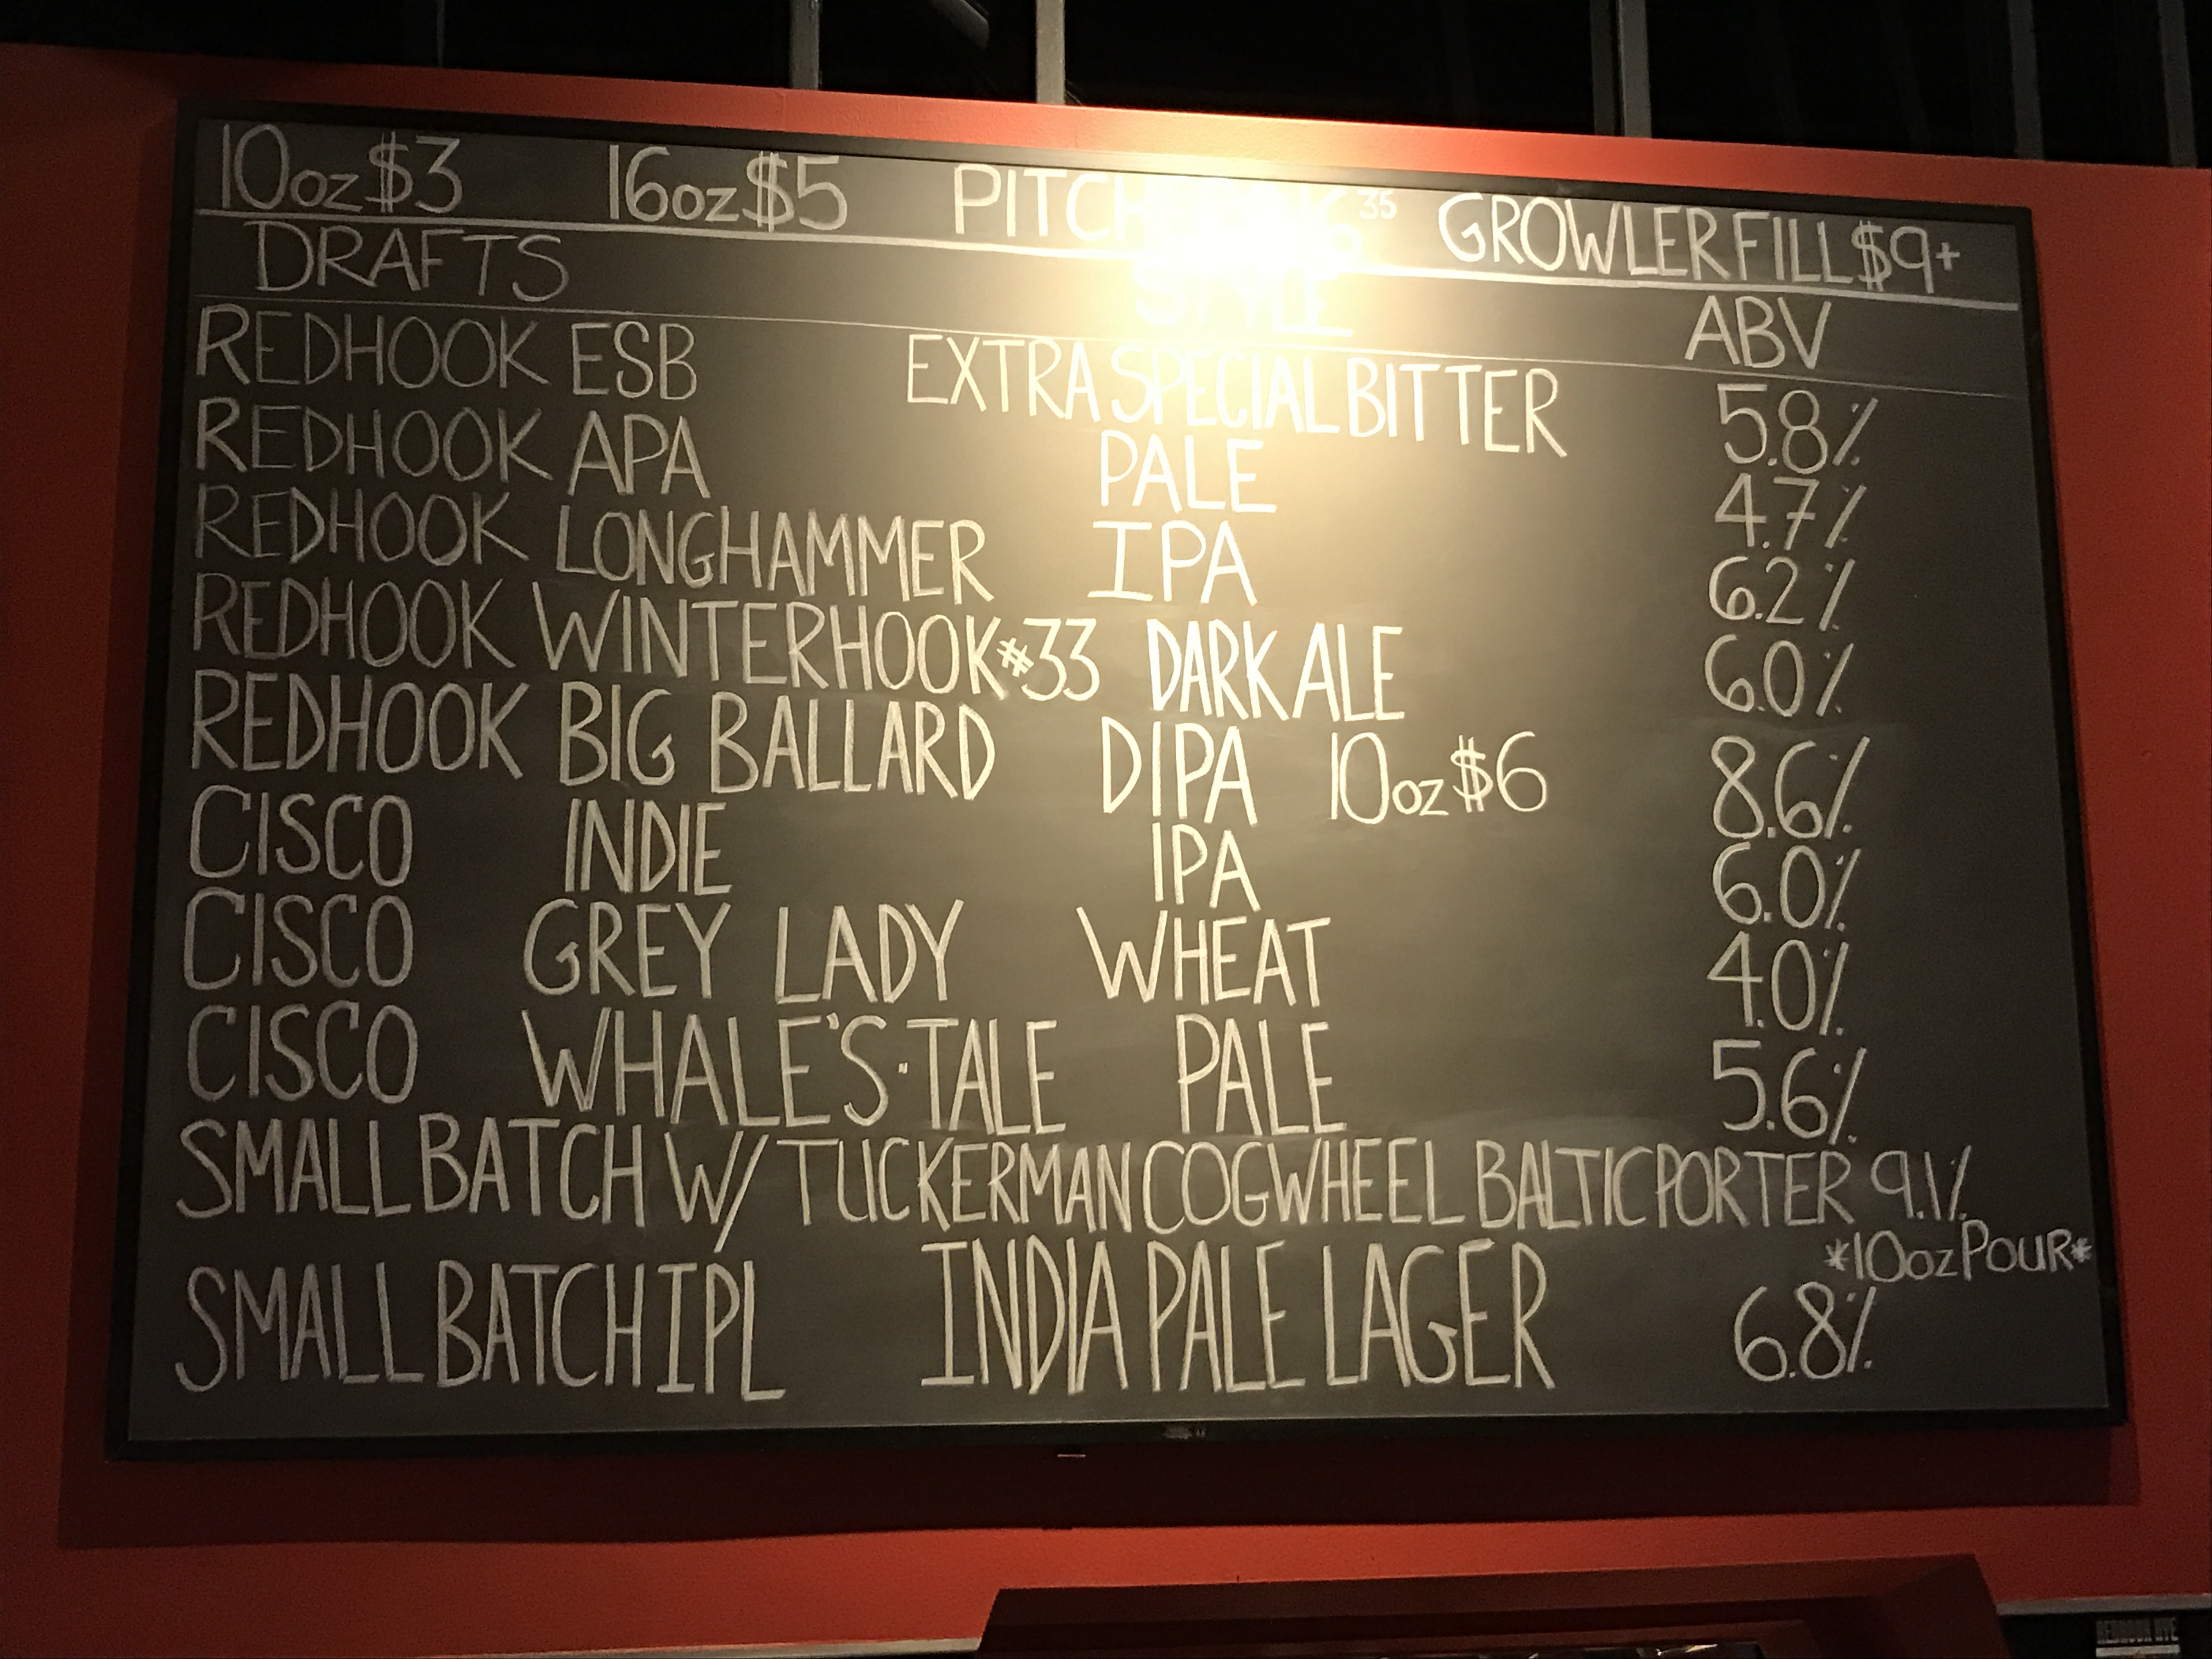 10oz $3 16oz $5 35 GROWLER FILL $9+
DRAFTS STYLE ABV
REDHOOK ESB EXTRA SPECIAL BITTER 5.8%
REDHOOK APA PALE 4.7%
REDHOOK LONGHAMMER IPA 6.2%
REDHOOK WINTERHOOK #33 DARK ALE 6.0%
REDHOOK BIG BALLARD DIPA 10oz $6 8.6%
CISCO INDIE IPA 6.0%
CISCO GREY LADY WHEAT 4.0%
CISCO WHALE'S·TALE PALE 5.6%
SMALL BATCH W/ TUCKERMAN COGWHEEL BALTIC PORTER 9.1%
*10oz POUR*
SMALL BATCH IPL INDIA PALE LAGER 6.8%